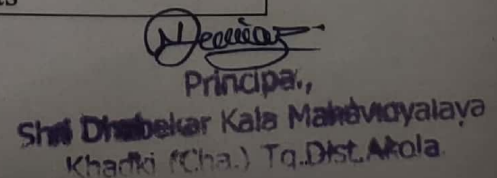 Principal.,
Shri Dhabekar Kala Mahavidyalaya
Khadki (Cha.) Tq.Dist.Akola